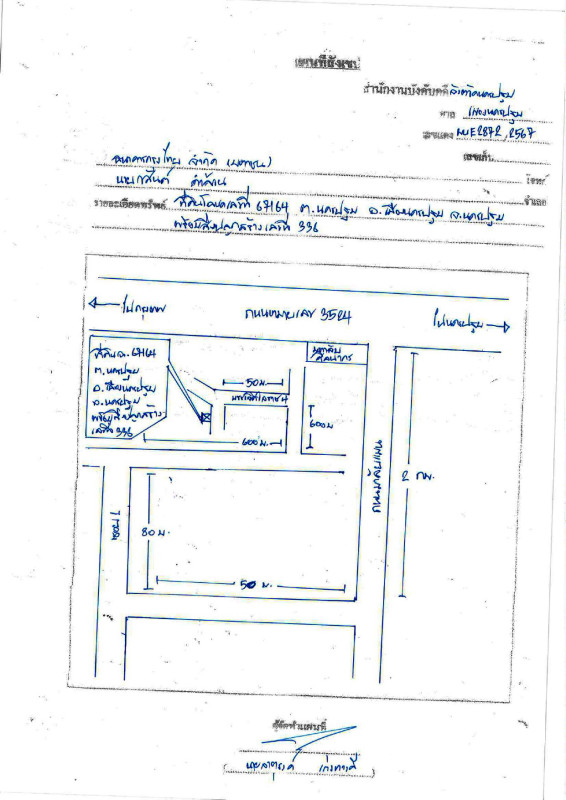 แผนที่สังเขป
สำนักงานบังคับคดีจังหวัดนครปฐม
ศาล เมืองนครปฐม
เลขแดง ผบE2872/2567
เลขเก็บ
ธนาคารกรุงไทย จำกัด (มหาชน) โจทก์
นาย จำเลย
รายละเอียดทรัพย์ ที่ดินโฉนดเลขที่ 67164 ต.นครปฐม อ.เมืองนครปฐม จ.นครปฐม
พร้อมสิ่งปลูกสร้างเลขที่ 336
ไปกรุงเทพ
ถนนหมายเลข 3524
ไปนครปฐม
ที่ดิน ฉ. 67164
ต.นครปฐม
อ.เมืองนครปฐม
จ.นครปฐม
พร้อมสิ่งปลูกสร้าง
เลขที่ 336
50 ม.
600 ม.
600 ม
2 กม.
80 ม.
50 ม.
ผู้จัดทำแผนที่